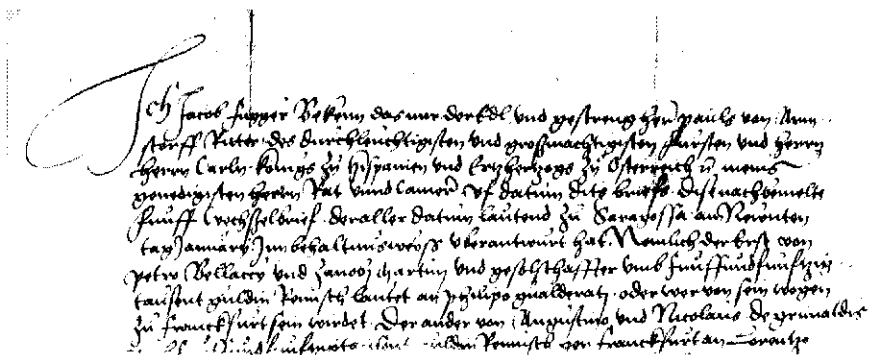 Ich Jacob Fugger Bekenn das mir der Edl vnd gestreng Her pauls von Arm
storff Ritter des durchleuchtigisten vnd großmachtigisten Fursten vnd herrn
herrn Carln Konigs zu Hispanien vnd Ertzhertzogs zu Osterreich u meins
genedigisten herrn Rat vnnd Camerr vf datum ditz briefs dise nachbemelte
funff wechsselbrief der aller datum lautend zu Saragossa am Newnten
tag January Inn behaltnusweyss vberantwurt hat. Nemlich der Erst von
petro Bellaccy vnd Zanobj Martin vnd geselschaffter vmb funffundfunftzig
tausent guldin Reinisch lautet an philipo gualderatj oder wer von sein wegen
zu Franckfurt sein wirdet Der ander von Augustino vnd Nicolaus de grimaldis
guldin Reinisch gen Franckfurt an Lorentzo